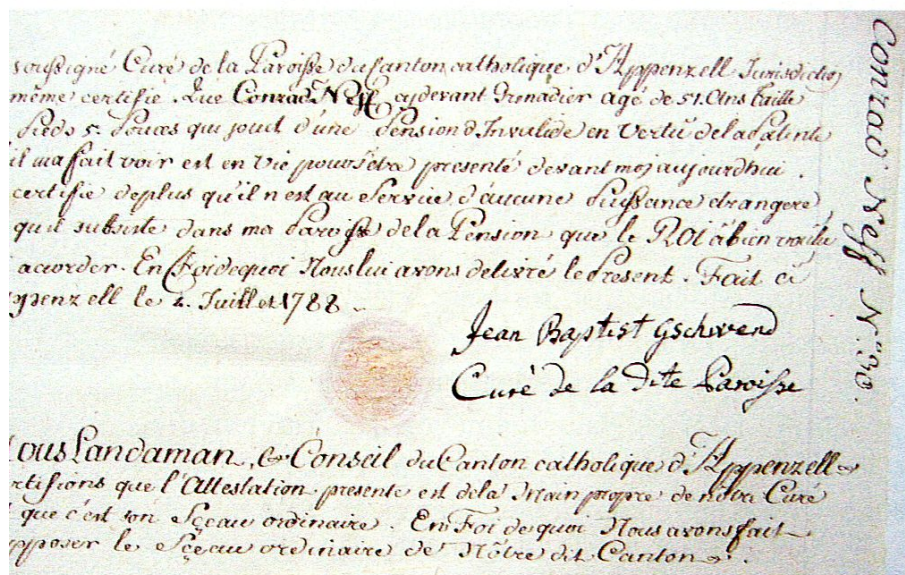 soussigné Curé de la Paroisse du Canton catholique d'Appenzell Jurisdiction
même certifie Que Conrad Neff cydevant Grenadier agé de 51. Ans taille
Pieds 5. Pouces qui jouit d'une Pension d'Invalide en Vertü de la Patente
il m'a fait voir est en Vie pour s'être presenté devant moj aujourdhui.
certifie deplus qu'il n'est au Service d'aucune Puissance etrangere
qu'il subsiste dans ma Paroisse de la Pension que le ROI à bien voulu
accorder. En Foi de quoi Nous lui avons delivré le Present. Fait à
ppenzell le 2. Juillet 1788
Jean Baptist Gschwend
Curé de la dite Paroisse
Conrad Neff N.º 30.
Nous Landaman, & Conseil du Canton catholique d'Appenzell
rtifions que l'Attestation presente est de la Main propre de nôtre Curé
que c'est son Sçeau ordinaire. En Foi de quoi Nous avons fait
pposer le Sçeau ordinaire de Nôtre dit Canton.